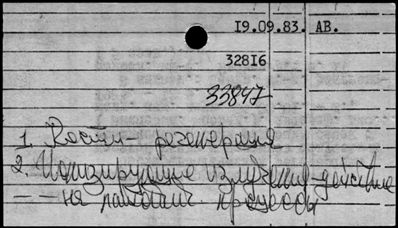 I9.09.83. АВ.
328I6
33847
1. Кости - регенерация
2. Ионизирующие излучения - действие
— — на процессы